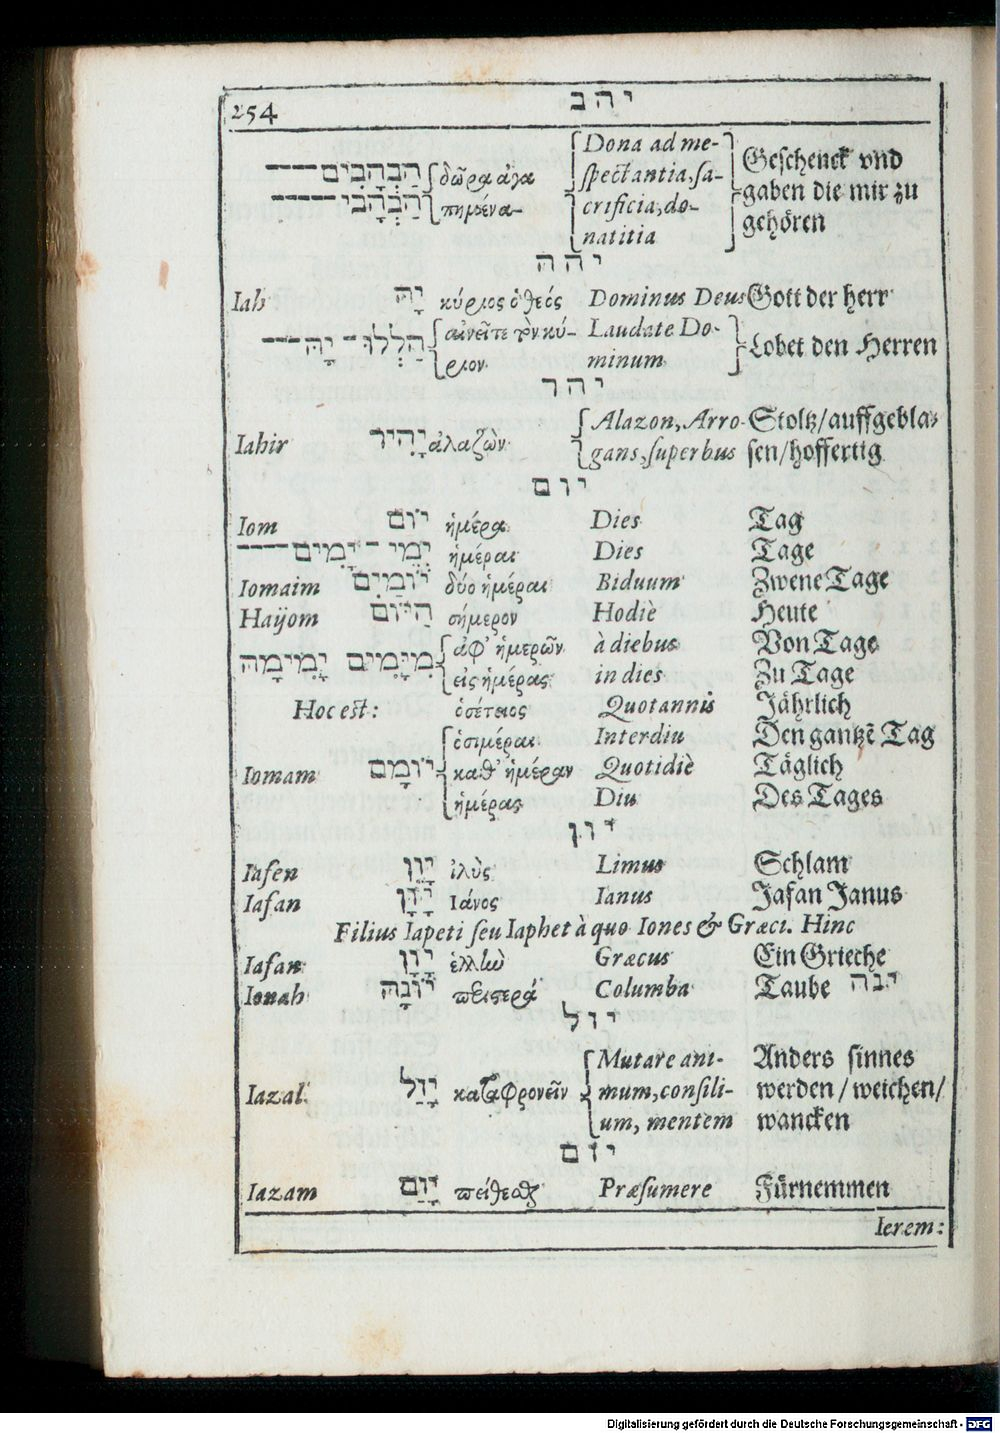 254 יהב
הַבְהָבִים δῶρα ἀγα- Dona ad me- Geschenck vnd
הַבְהָבִי πημένα- spectantia, sa- gaben die mir zu
crificia, do- gehören
natitia
יהה
Iah יָהּ κύριος ὁ θεός Dominus Deus Gott der herr
הַלְלוּ־יָהּ αἰνεῖτε τὸν κύ- Laudate Do- Lobet den Herren
ριον minum
יהר
Alazon, Arro- Stoltz/auffgebla-
Iahir יָהִיר ἀλαζὼν gans, superbus sen/hoffertig
יום
Iom יוֹם ἡμέρα Dies Tag
יְמֵי־יָמִים ἡμέραι Dies Tage
Iomaim יוֹמַיִם δύο ἡμέραι Biduum Zwene Tage
Haÿom הַיּוֹם σήμερον Hodiè Heute
מִיָּמִים יָמִימָה ἀφ' ἡμερῶν à diebus Von Tage
εἰς ἡμέρας in dies Zu Tage
Hoc est: ὁσέτειος Quotannis Jährlich
ὁσιμέραι Interdiu Den gantzē Tag
Iomam יוֹמָם καθ' ἡμέραν Quotidiè Täglich
ἡμέρας Diu Des Tages
יון
Iafen יָוֵן ἰλὺς Limus Schlam
Iafan יָוָן Ιάνος Ianus Jafan Janus
Filius Iapeti seu Iaphet à quo Iones & Græci. Hinc
Iafan יָוָן ἑλλὼ Græcus Ein Grieche
Ionah יוֹנָה πειστερά Columba Taube ינה
יול
Mutare ani- Anders sinnes
Iazal יָזַל καταφρονεῖν mum, consili- werden/weichen/
um, mentem wancken
יזם
Iazam יָזַם πείθεαζ Præsumere Fürnemmen
Ierem:
Digitalisierung gefördert durch die Deutsche Forschungsgemeinschaft - DFG